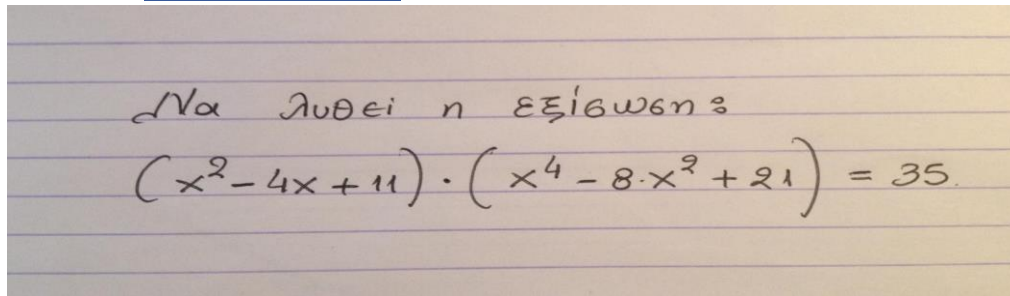 Να λυθεί η εξίσωση:
(x² - 4x + 11) · (x⁴ - 8·x² + 21) = 35.